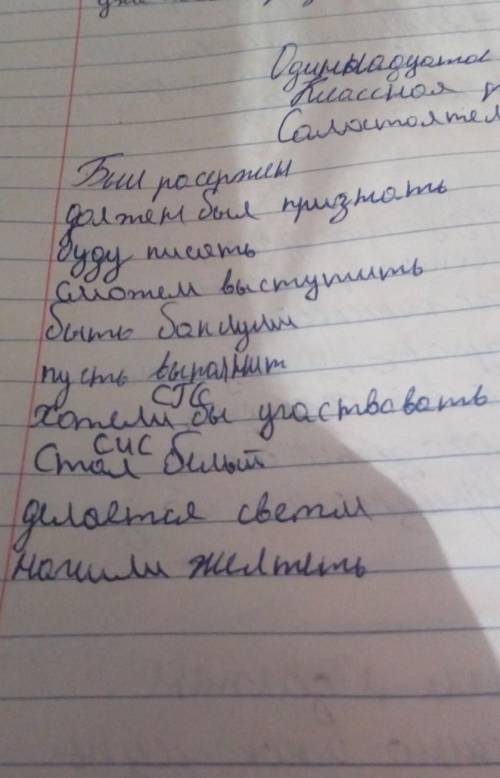 Одинынадцатое
Классная р
Самостоятел
Был рассержен
должен был признать
буду писать
сможем выступить
быть
пусть выполнит
СГС
хотели бы участвовать
СИС
Стал белый
делается светл
начали желтеть